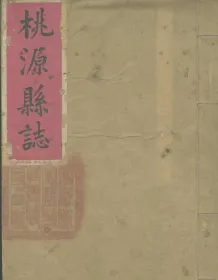 桃源縣誌